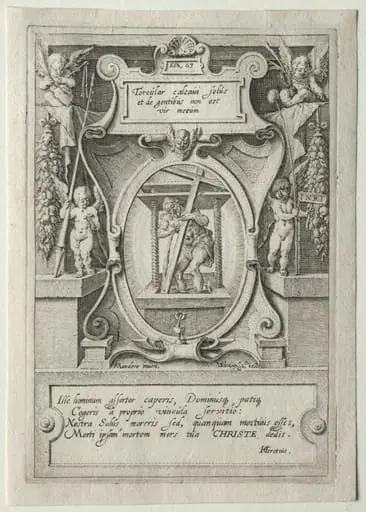 ESA. 63
Torcular calcaui solus
et de gentibus non est
vir mecum
INRI
Mandere inuen.
Ille hominum assertor caperis, Dominusq, patiq,
Cogeris à proprio vincula servitio:
Nostra Salus moreris sed, quanquam mortuus esses,
Morti ipsam mortem mors tua CHRISTE dedit.